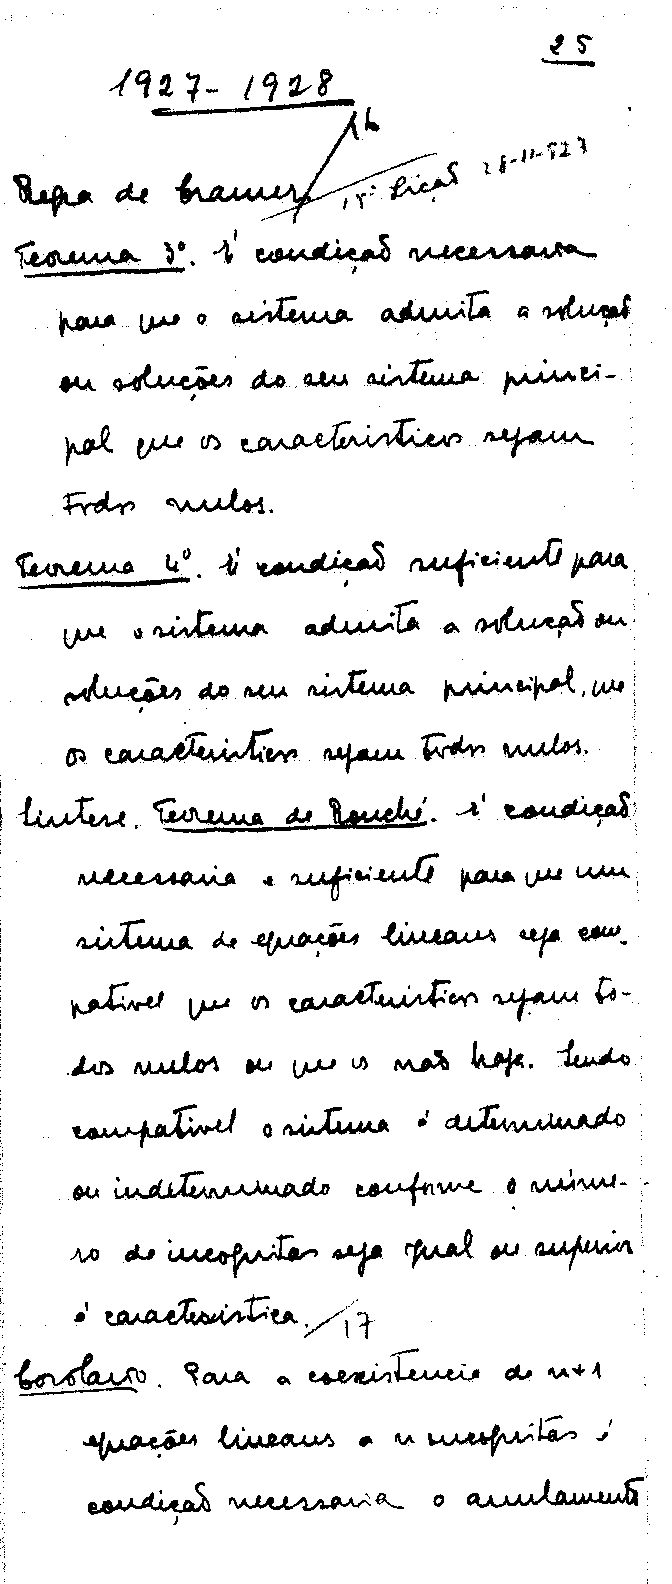 25
1927-1928
16
Regra de Cramer 15ª lição 28-11-927
Teorema 3º. É condição necessaria
para que o sistema admita a solução
ou soluções do seu sistema princi-
pal que os caracteristicos sejam
todos nulos.
Teorema 4º. É condição suficiente para
que o sistema admita a solução ou
soluções do seu sistema principal, que
os caracteristicos sejam todos nulos.
Sintese. Teorema de Rouché. É condição
necessaria e suficiente para que um
sistema de equações lineares seja com-
pativel que os caracteristicos sejam to-
dos nulos ou que os não haja. Sendo
compativel o sistema é determinado
ou indeterminado conforme o núme-
ro de incognitas seja igual ou superior
á caracteristica. /17
Corolario. Para a coexistencia de n+1
equações lineares a n incognitas é
condição necessaria o anulamento